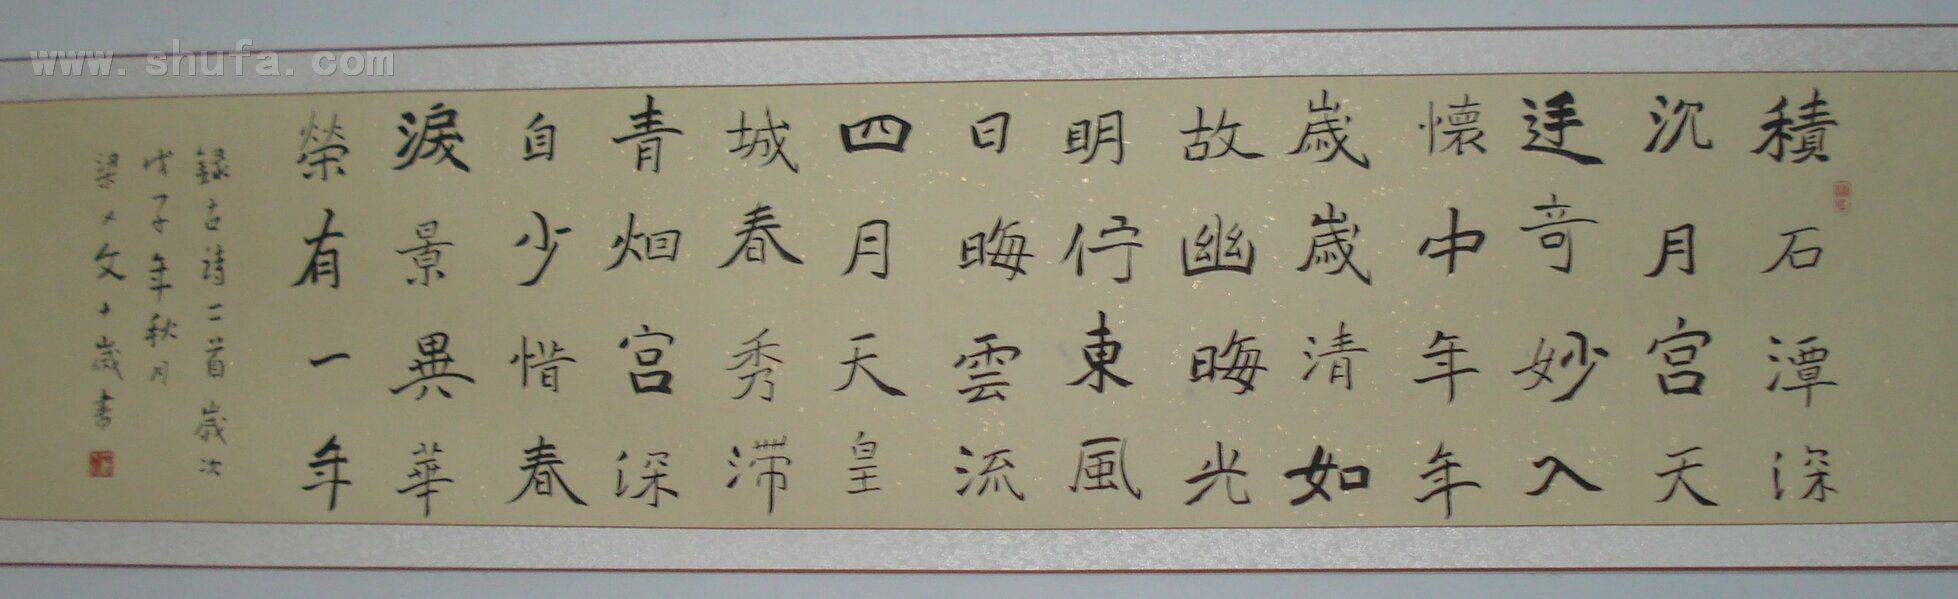 積石潭深
沉月宮天
迋奇妙入
懷中年年
歲歲清如
故幽晦光
明佇東風
日晦雲流
四月天皇
城春秀滯
青畑宮深
自少惜春
淚景異華
榮有一年
録古詩二首歲次
戊子年秋月
梁文十歲書
www.shufa.com